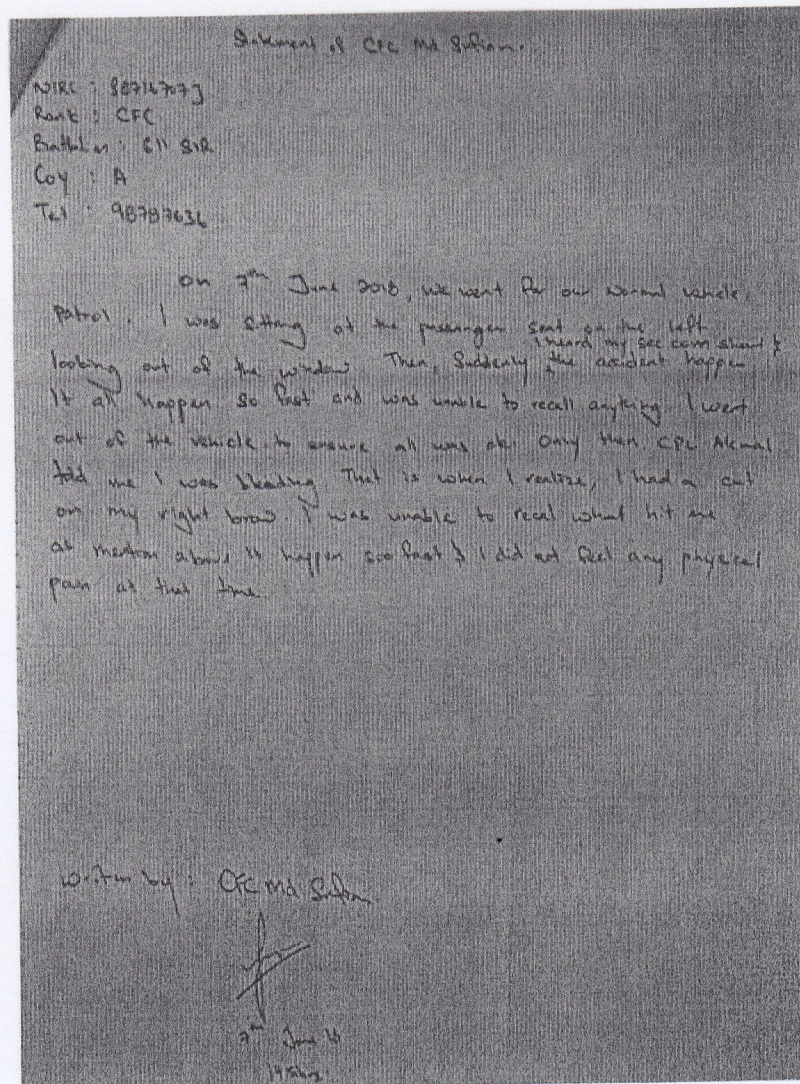 Statement of CFC Md Sufian.
NIRC : S8714707J
Rank : CFC
Battalion : 611 SIR
Coy : A
Tel : 98787636
On 7th June 2018, we went for our normal vehicle
patrol. I was sitting at the passenger seat on the left
I heard my sec com shout &
looking out of the window. Then, Suddenly the accident happen
It all happen so fast and was unable to recall anything. I went
out of the vehicle to ensure all was ok. Only then, CPL Akmal
told me I was bleading. That is when I realize, I had a cut
on my right brow. I was unable to recal what hit me
as mention above it happen soo fast & I did not feel any physical
pain at that time.
written by : CFC Md Sufian
7th June 18